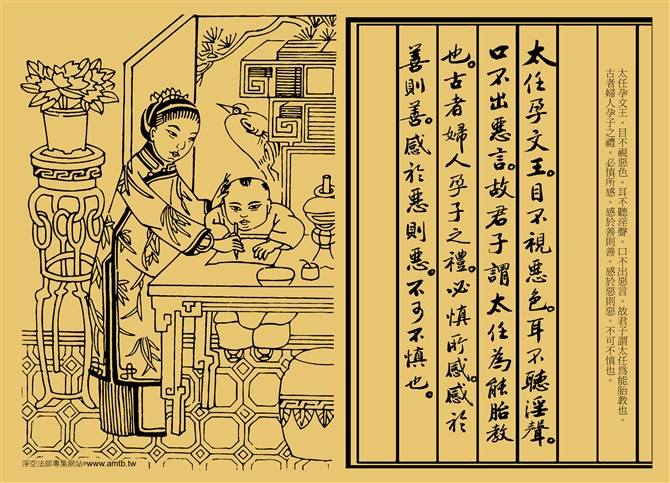 太任孕文王。目不視惡色。耳不聽淫聲。口不出惡言。故君子謂太任爲能胎教也。
古者婦人孕子之禮。必慎所感。感於善則善。感於惡則惡。不可不慎也。
太任孕文王。目不視惡色。耳不聽淫聲。
口不出惡言。故君子謂太任為能胎教
也。古者婦人孕子之禮。必慎所感。感於
善則善。感於惡則惡。不可不慎也。
淨空法師專集網站#www.amtb.tw